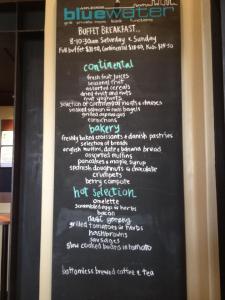 bluewater
BUFFET BREAKFAST..
8-10:30am Saturday & Sunday
Full buffet Continental Kids
continental
fresh fruit juices
seasonal fruit
assorted cereals
dried fruit and nuts
fruit yoghurts
selection of continental meats & cheeses
smoked salmon & mini bagels
grilled asparagus
cornichons
bakery
freshly baked croissants & danish pastries
selection of breads
english muffins, date & banana bread
assorted muffins
pancakes & maple syrup
spanish doughnuts & chocolate
crumpets
berry compote
hot selection
omelette
scrambled eggs & herbs
bacon
grilled tomatoes & herbs
hashbrowns
sausages
slow cooked beans in tomato
bottomless brewed coffee & tea